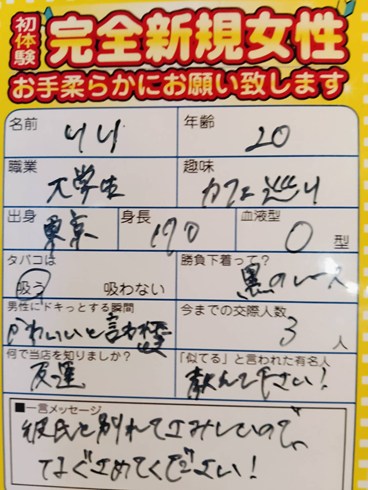 初体験 完全新規女性
お手柔らかにお願い致します
名前 りり 年齢 20
職業 大学生 趣味 カフェ巡り
出身 東京 身長 170 血液型 O 型
タバコは 吸う 吸わない 勝負下着って? 黒のレース
男性にドキっとする瞬間 かわいいと言われ 今までの交際人数 3 人
何で当店を知りましたか? 友達 「似てる」と言われた有名人 教えて下さい!
■一言メッセージ
彼氏と別れてさみしいので、
なぐさめてください!